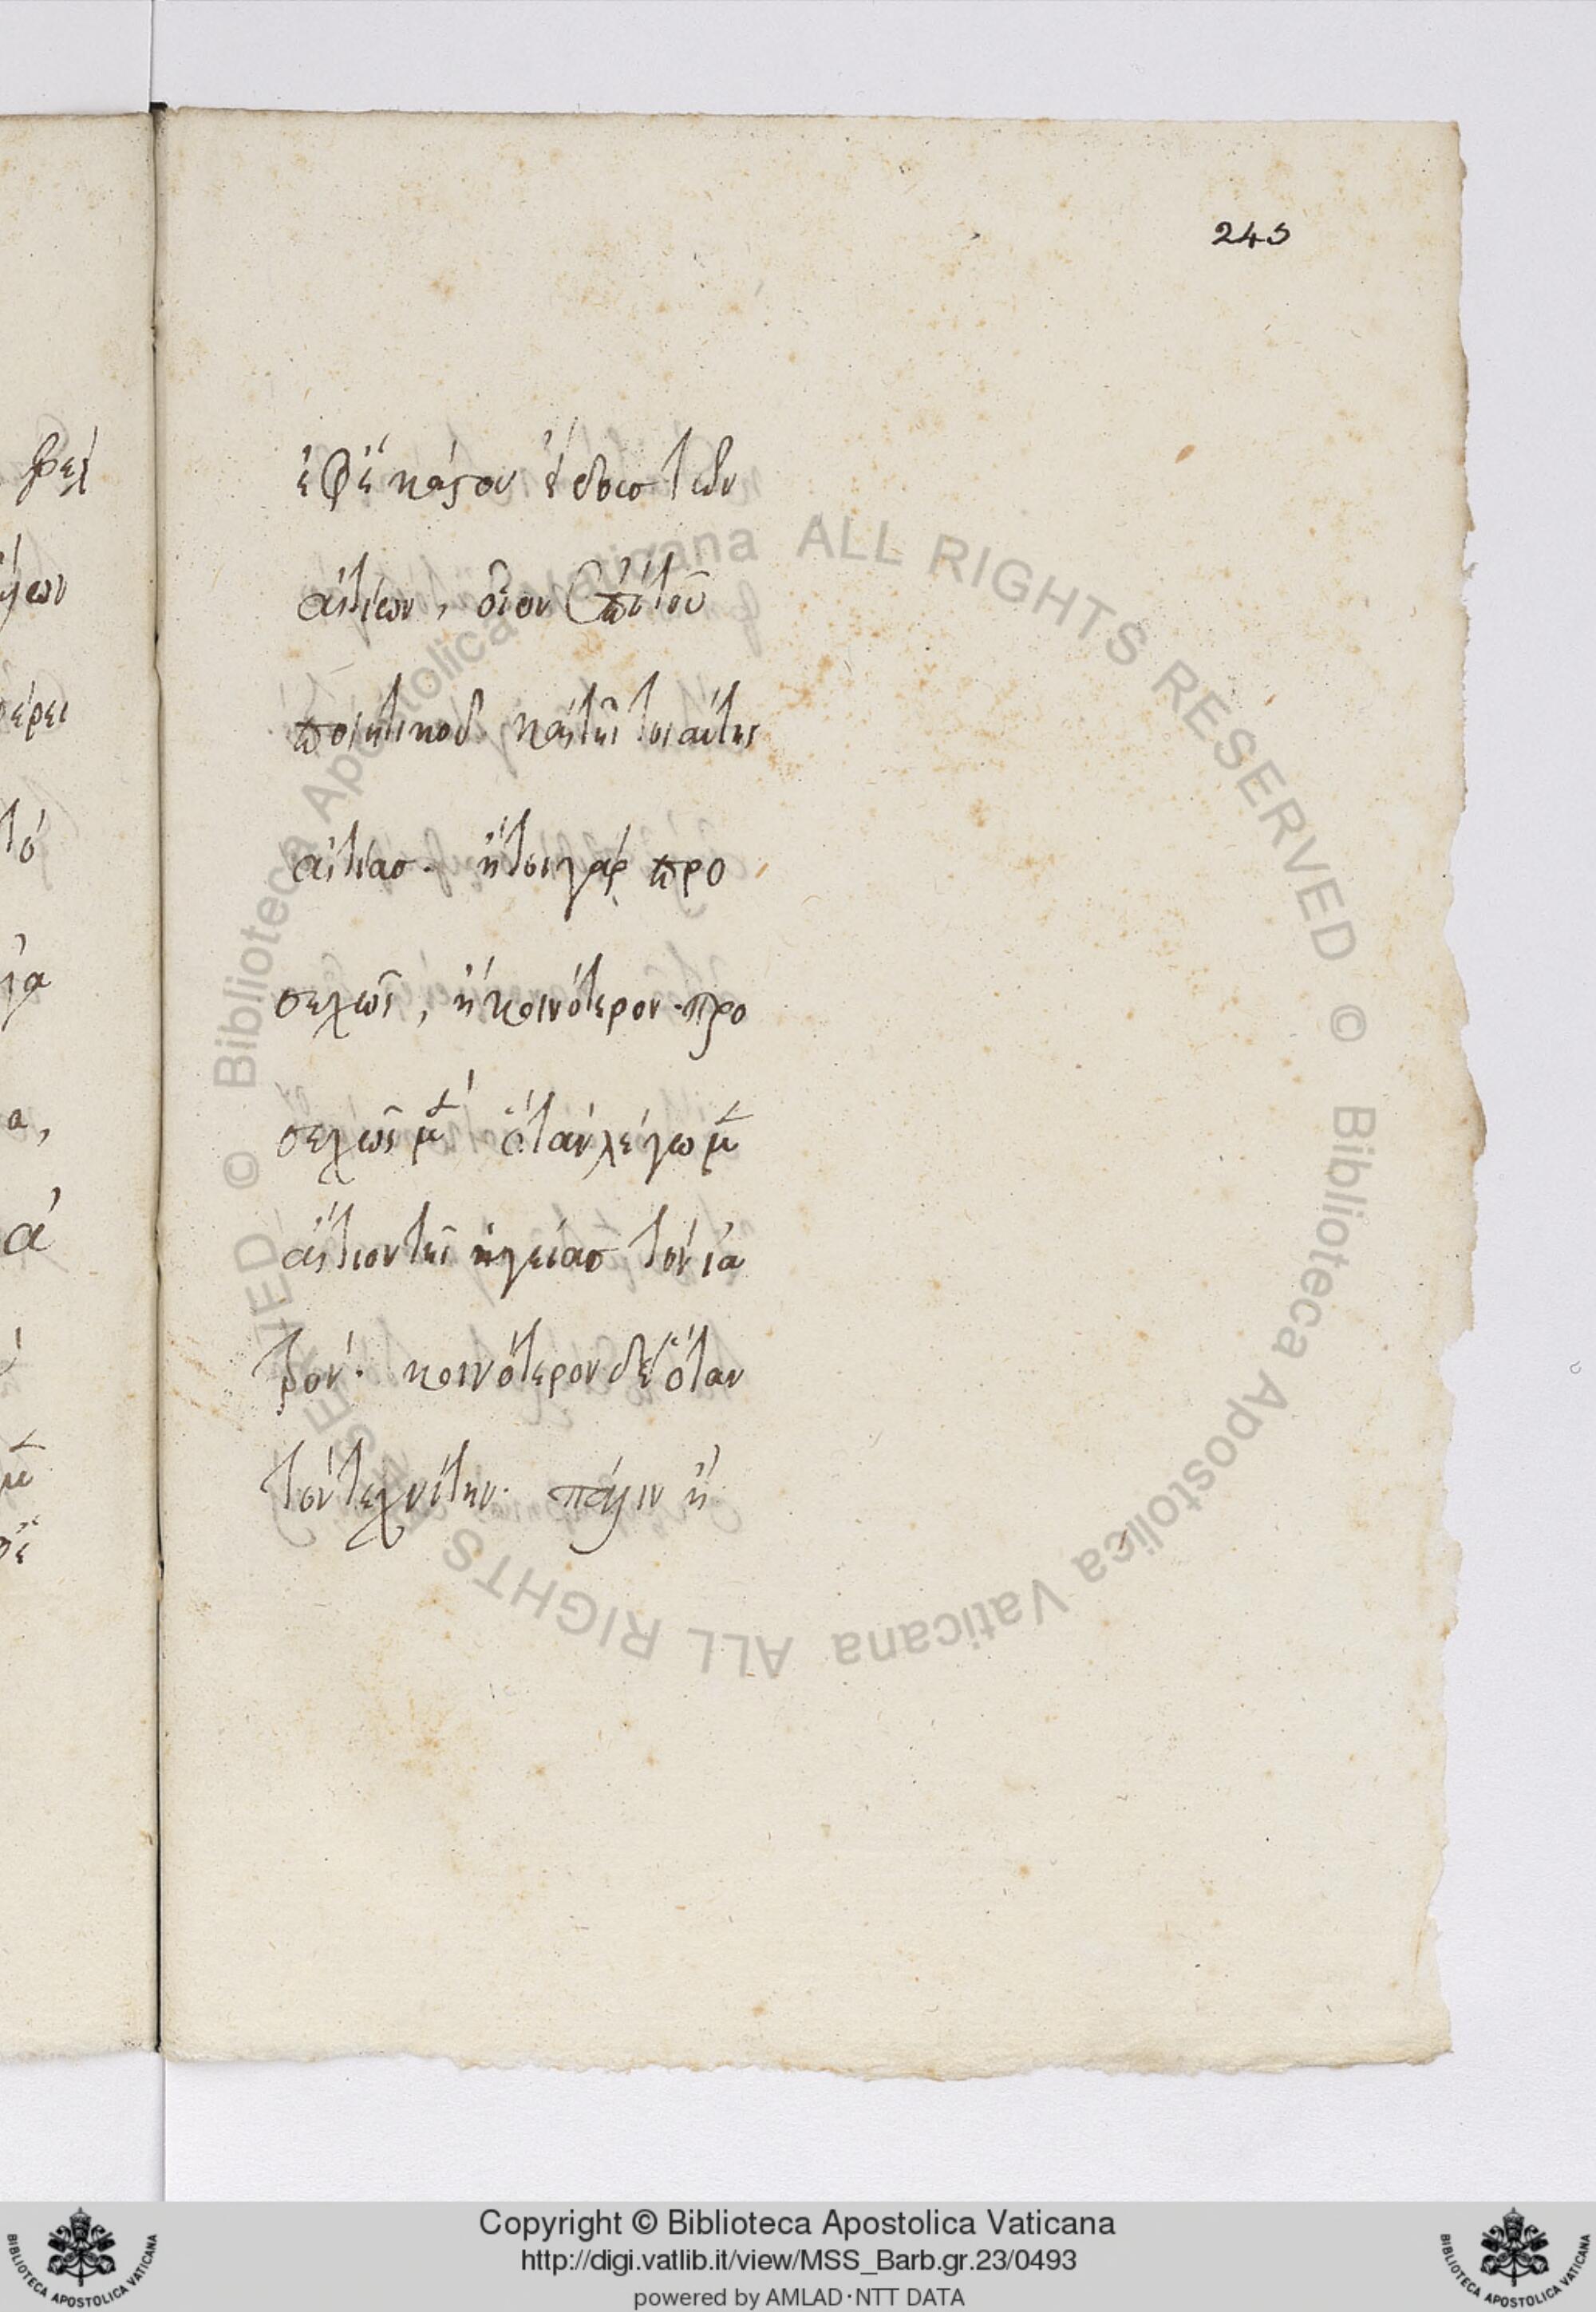 245
ἐφ' ἑκάστου εἴδους τῶν
αἰτίων, οἷον ἐπὶ τοῦ
ποιητικοῦ καὶ τῆς τοιαύτης
αἰτίας. ἤτοι γὰρ προ
σεχῶς, ἢ κοινότερον. προ
σεχῶς μὲν ὅταν λέγωμεν
αἴτιον τῆς ὑγείας τὸν ἰα
τρόν. κοινότερον δὲ ὅταν
τὸν τεχνίτην. πάλιν ἢ
© Biblioteca Apostolica Vaticana ALL RIGHTS RESERVED © Biblioteca Apostolica Vaticana ALL RIGHTS RESERVED
Copyright © Biblioteca Apostolica Vaticana
http://digi.vatlib.it/view/MSS_Barb.gr.23/0493
powered by AMLAD·NTT DATA
BIBLIOTECA APOSTOLICA VATICANA
BIBLIOTECA APOSTOLICA VATICANA